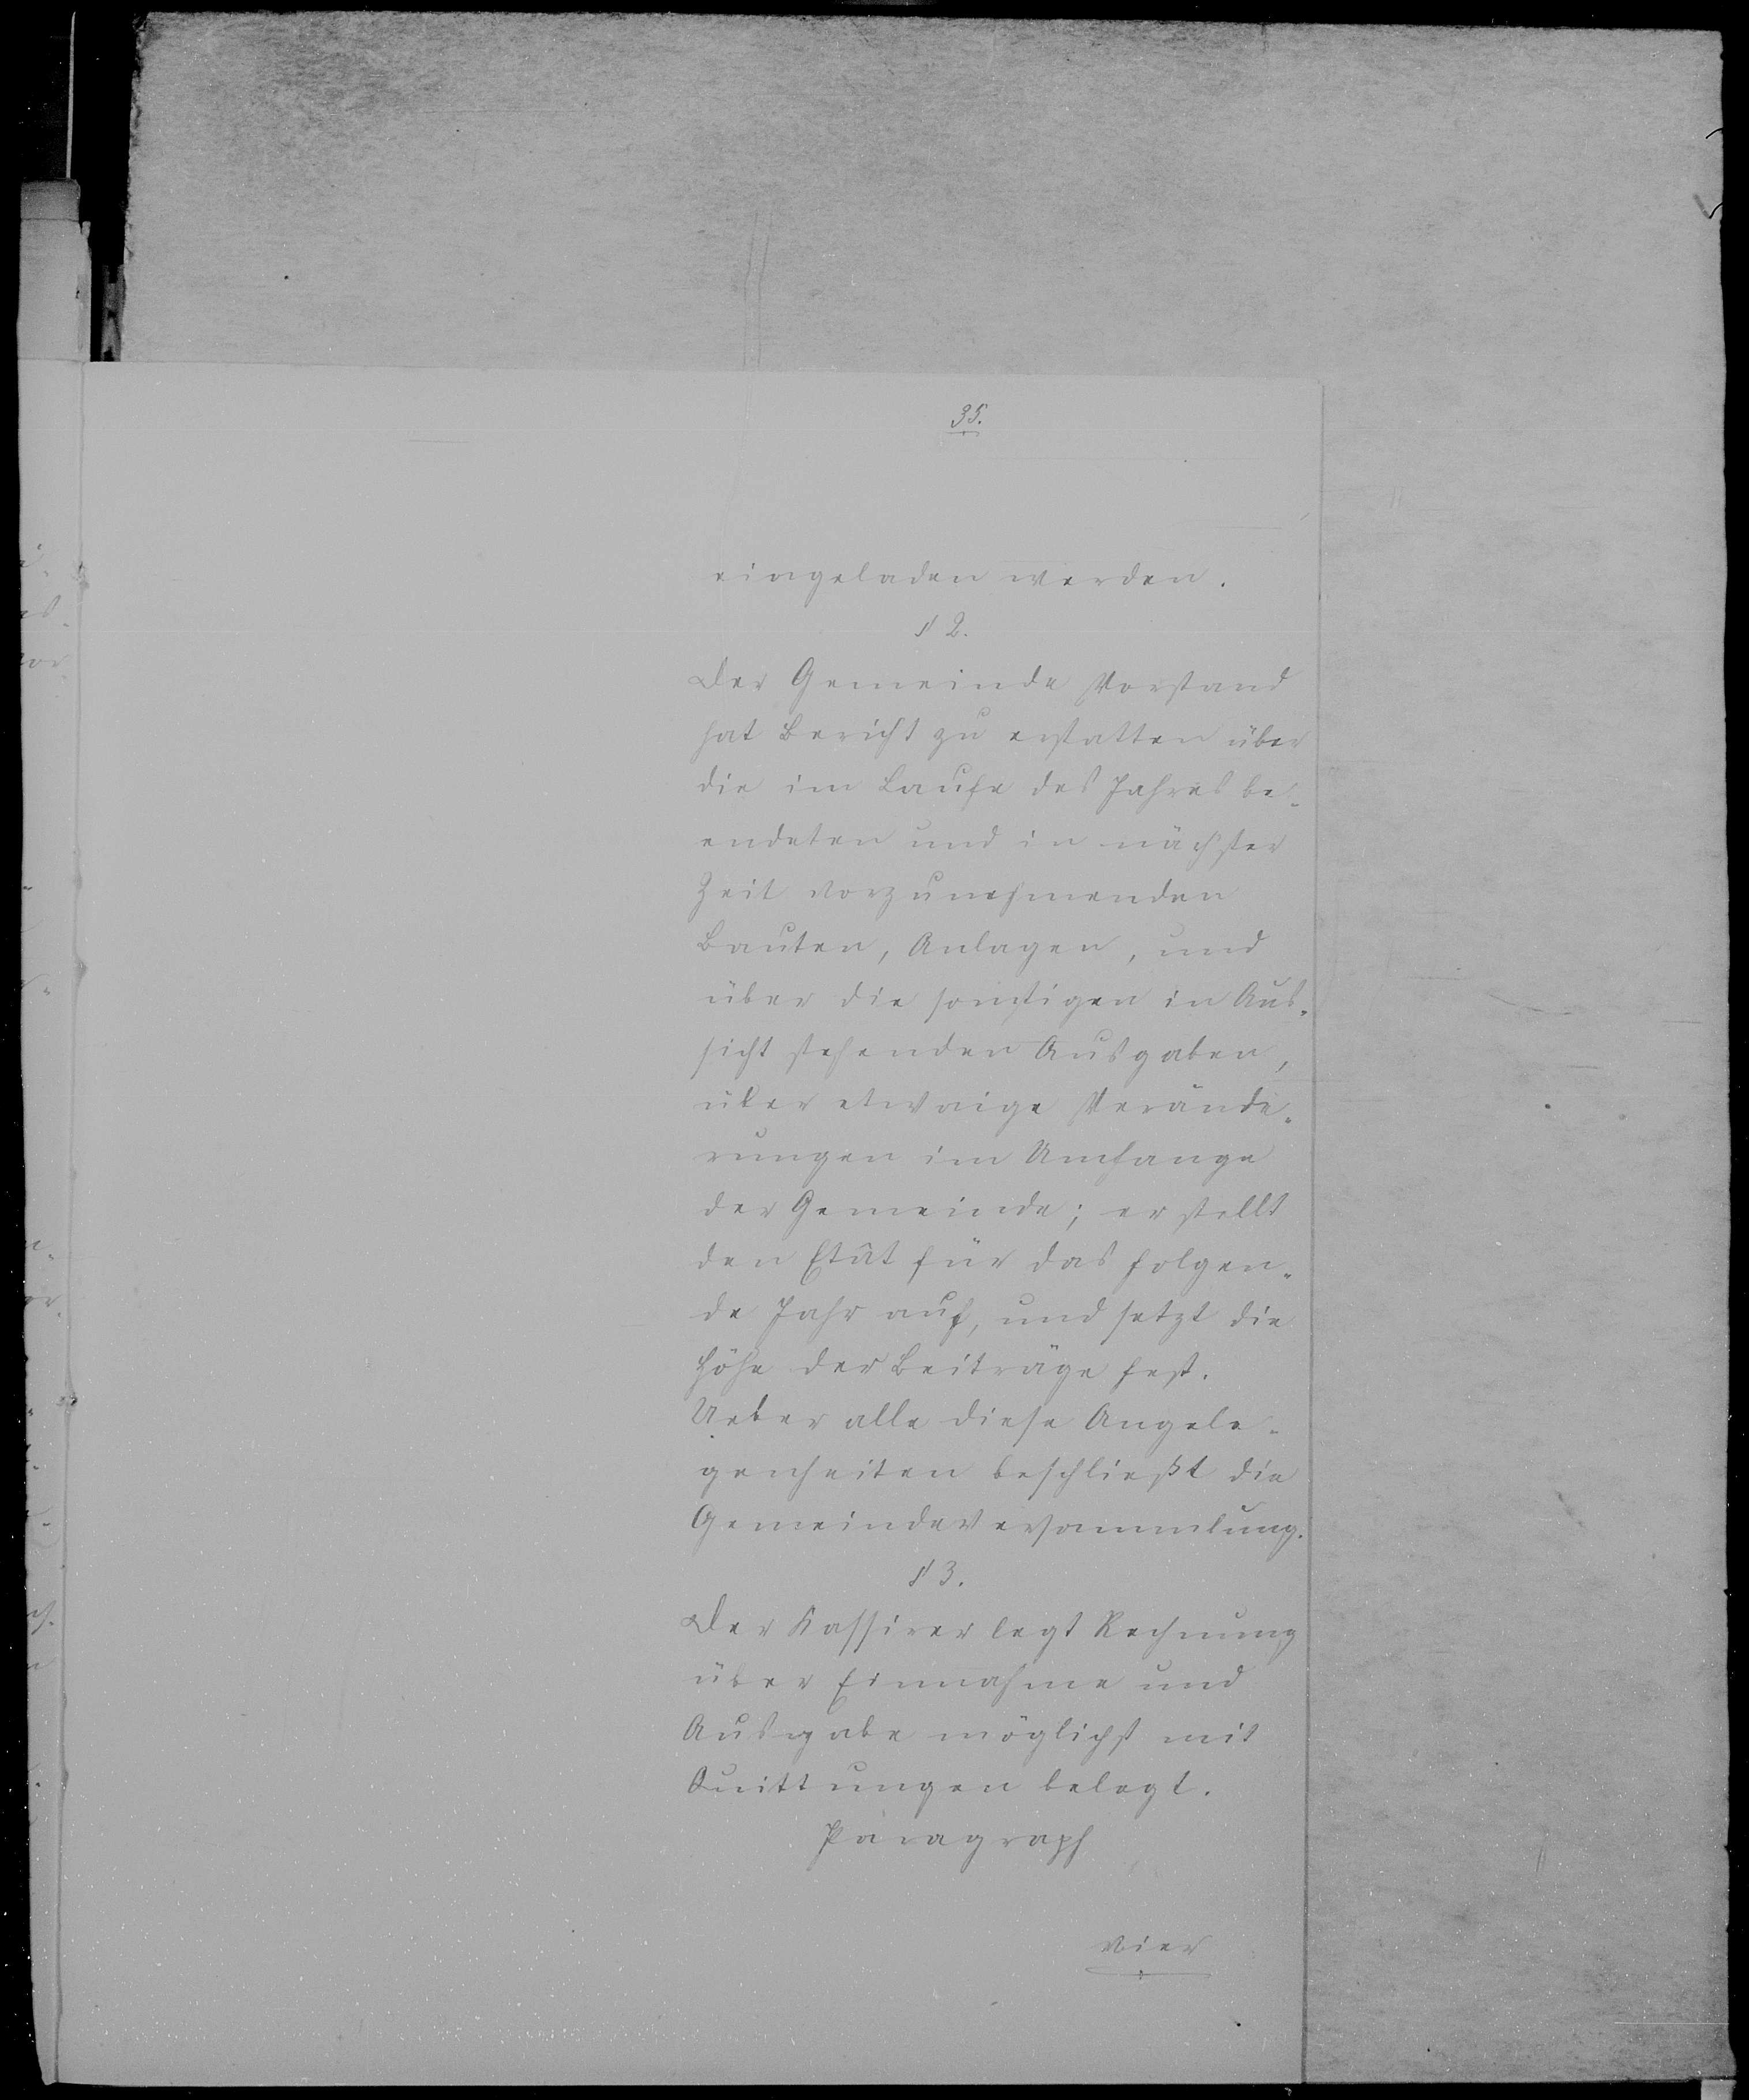 35.
eingeladen werden.
§ 2.
Der Gemeinde Vorstand
hat Bericht zu erstatten über
die im Laufe des Jahres be-
endeten und in nächster
Zeit vorzunehmenden
Bauten, Anlagen, und
über die sonstigen in Aus-
sicht stehenden Ausgaben,
über etwaige Verände-
rungen im Umfange
der Gemeinde; er stellt
den Etat für das folgen-
de Jahr auf, und setzt die
Höhe der Beiträge fest.
Ueber alle diese Angele-
genheiten beschließt die
Gemeindeversammlung.
§ 3.
Der Kassirer legt Rechnung
über Einnahme und
Ausgabe möglichst mit
Quittungen belegt.
Paragraph
vier